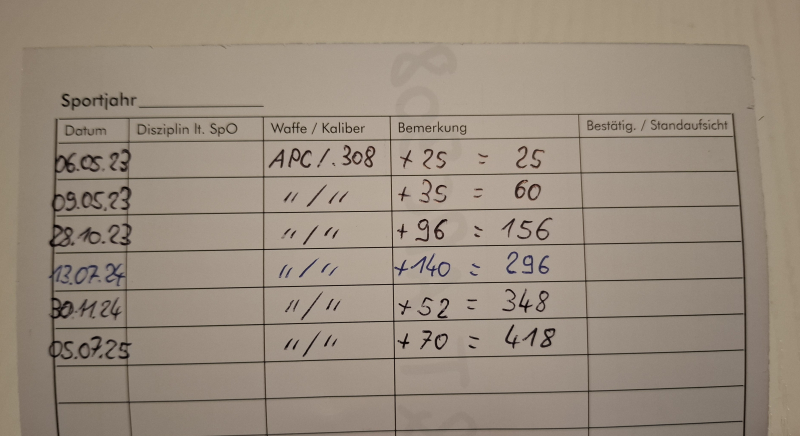 Sportjahr
Datum Disziplin lt. SpO Waffe / Kaliber Bemerkung Bestätig. / Standaufsicht
06.05.23 APC/.308 +25 = 25
09.05.23 "/" +35 = 60
28.10.23 "/" +96 = 156
13.07.24 "/" +140 = 296
30.11.24 "/" +52 = 348
05.07.25 "/" +70 = 418